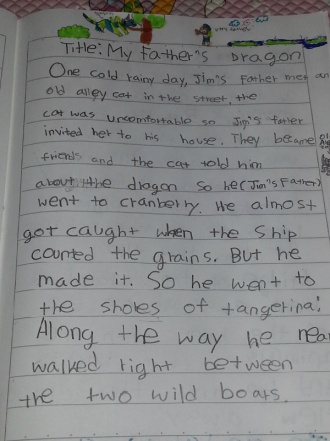 Title: My Father's Dragon
One cold rainy day, Jim's Father met an
old alley cat in the street, the
cat was uncomfortable so Jim's father
invited her to his house. They became
friends and the cat told him
about the dragon so he (Jim's Father)
went to cranberry. He almost
got caught when the ship
counted the grains. But he
made it. So he went to
the sholes of tangerina.
Along the way he near
walked right between
the two wild boars.